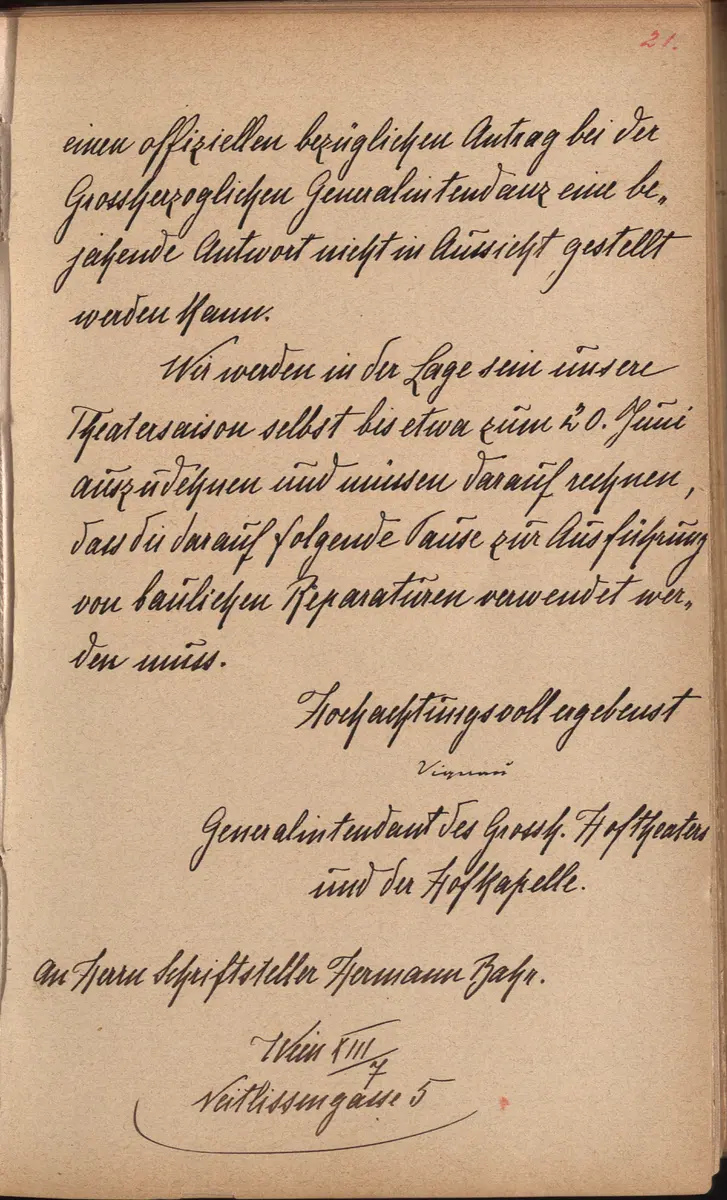 21.
einen offiziellen bezüglichen Antrag bei der
Grossherzoglichen Generalintendanz eine be„
jahende Antwort nicht in Aussicht gestellt
werden kann.
Wir werden in der Lage sein unsere
Theatersaison selbst bis etwa zum 20. Juni
auszudehnen und müssen darauf rechnen,
dass die darauf folgende Pause zur Ausführung
von baulichen Reparaturen verwendet wer„
den muss.
Hochachtungsvoll ergebenst
Vignau
Generalintendant des Grossh. Hoftheaters
und der Hofkapelle.
An Herrn Schriftsteller Hermann Bahr.
Wien XIII/7
Veitlissengasse 5